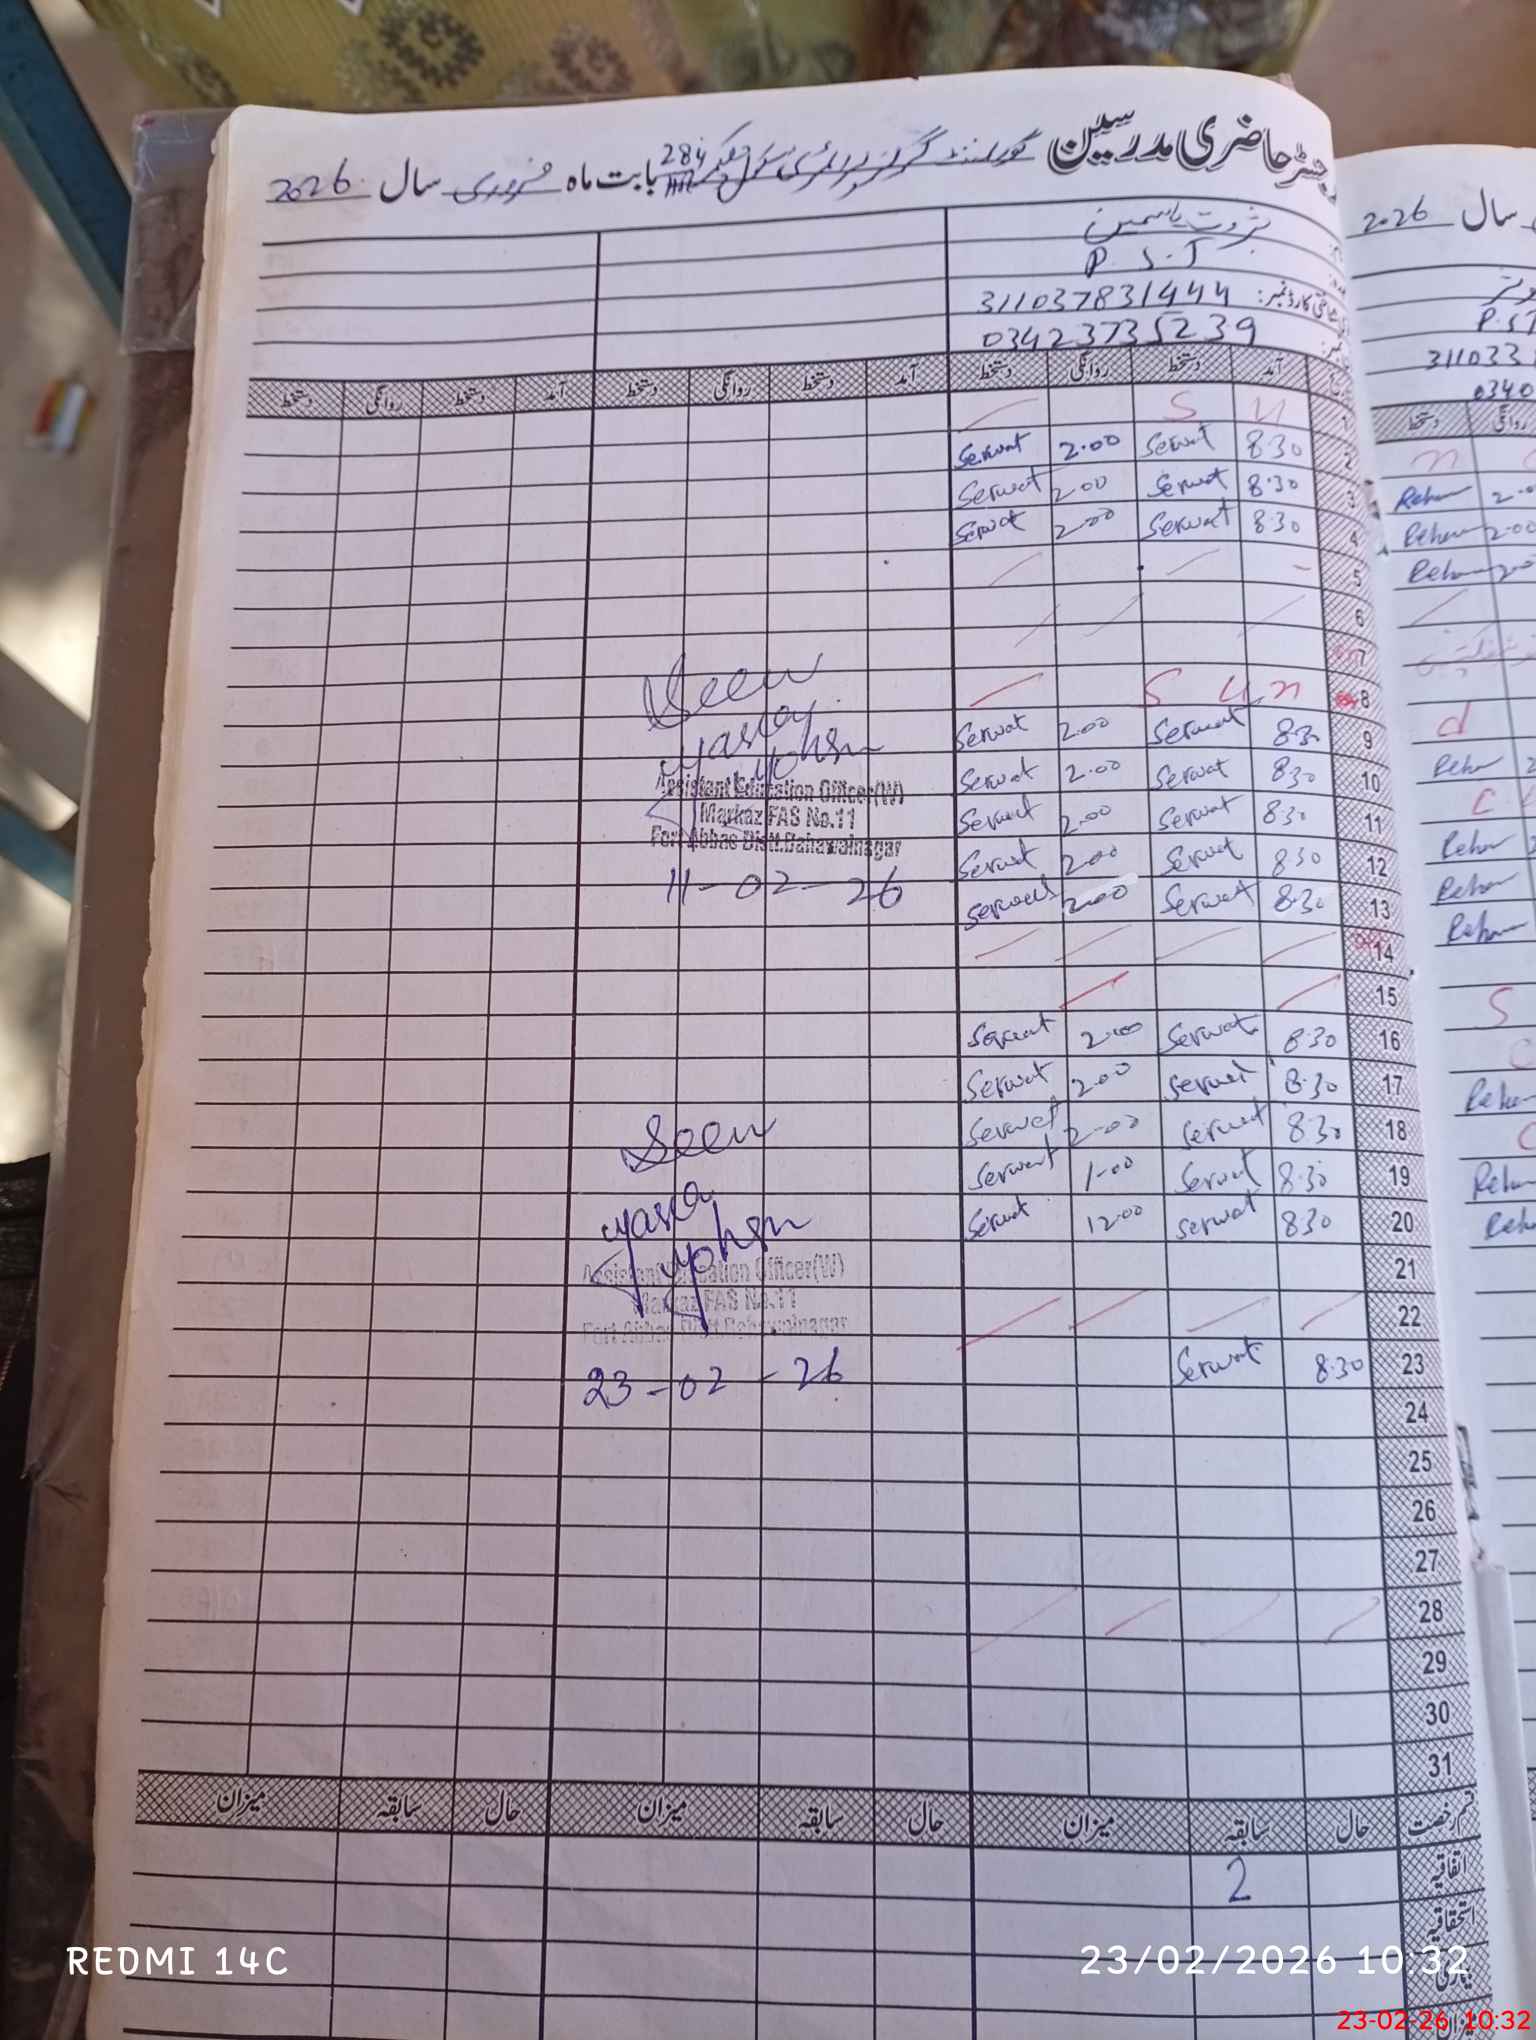 رجسٹر حاضری مدرسین گورنمنٹ گرلز پرائمری سکول چک 284 بابت ماہ فروری سال 2026
ثروت یاسمین
P.S.T
شناختی کارڈ نمبر: 311037831444
03423735239
آمد دستخط روانگی دستخط آمد دستخط روانگی دستخط آمد دستخط روانگی دستخط
1 S u n
2 8.30 Serwat 2.00 Serwat
3 8.30 Serwat 2.00 Serwat
4 8.30 Serwat 2.00 Serwat
5
6
7
8 S u n
9 8.30 Serwat 2.00 Serwat
10 8.30 Serwat 2.00 Serwat
11 8.30 Serwat 2.00 Serwat
12 8.30 Serwat 2.00 Serwat
13 8.30 Serwat 2.00 Serwat
14
15
16 8.30 Serwat 2.00 Serwat
17 8.30 Serwat 2.00 Serwat
18 8.30 Serwat 2.00 Serwat
19 8.30 Serwat 1.00 Serwat
20 8.30 Serwat 12.00 Serwat
21
22
23 8.30 Serwat
24
25
26
27
28
29
30
31
Seen
Assistant Education Officer(W)
Markaz FAS No.11
Fort Abbas Distt.Bahawalnagar
11-02-26
Seen
Assistant Education Officer(W)
Markaz FAS No.11
Fort Abbas Distt.Bahawalnagar
23-02-26
قسم رخصت حال سابقہ میزان حال سابقہ میزان حال سابقہ میزان
اتفاقیہ 2
استحقاقیہ
بیماری
سال 2026
P.ST
311033
0340
روانگی دستخط
REDMI 14C
23/02/2026 10:32
23-02-26 10:32